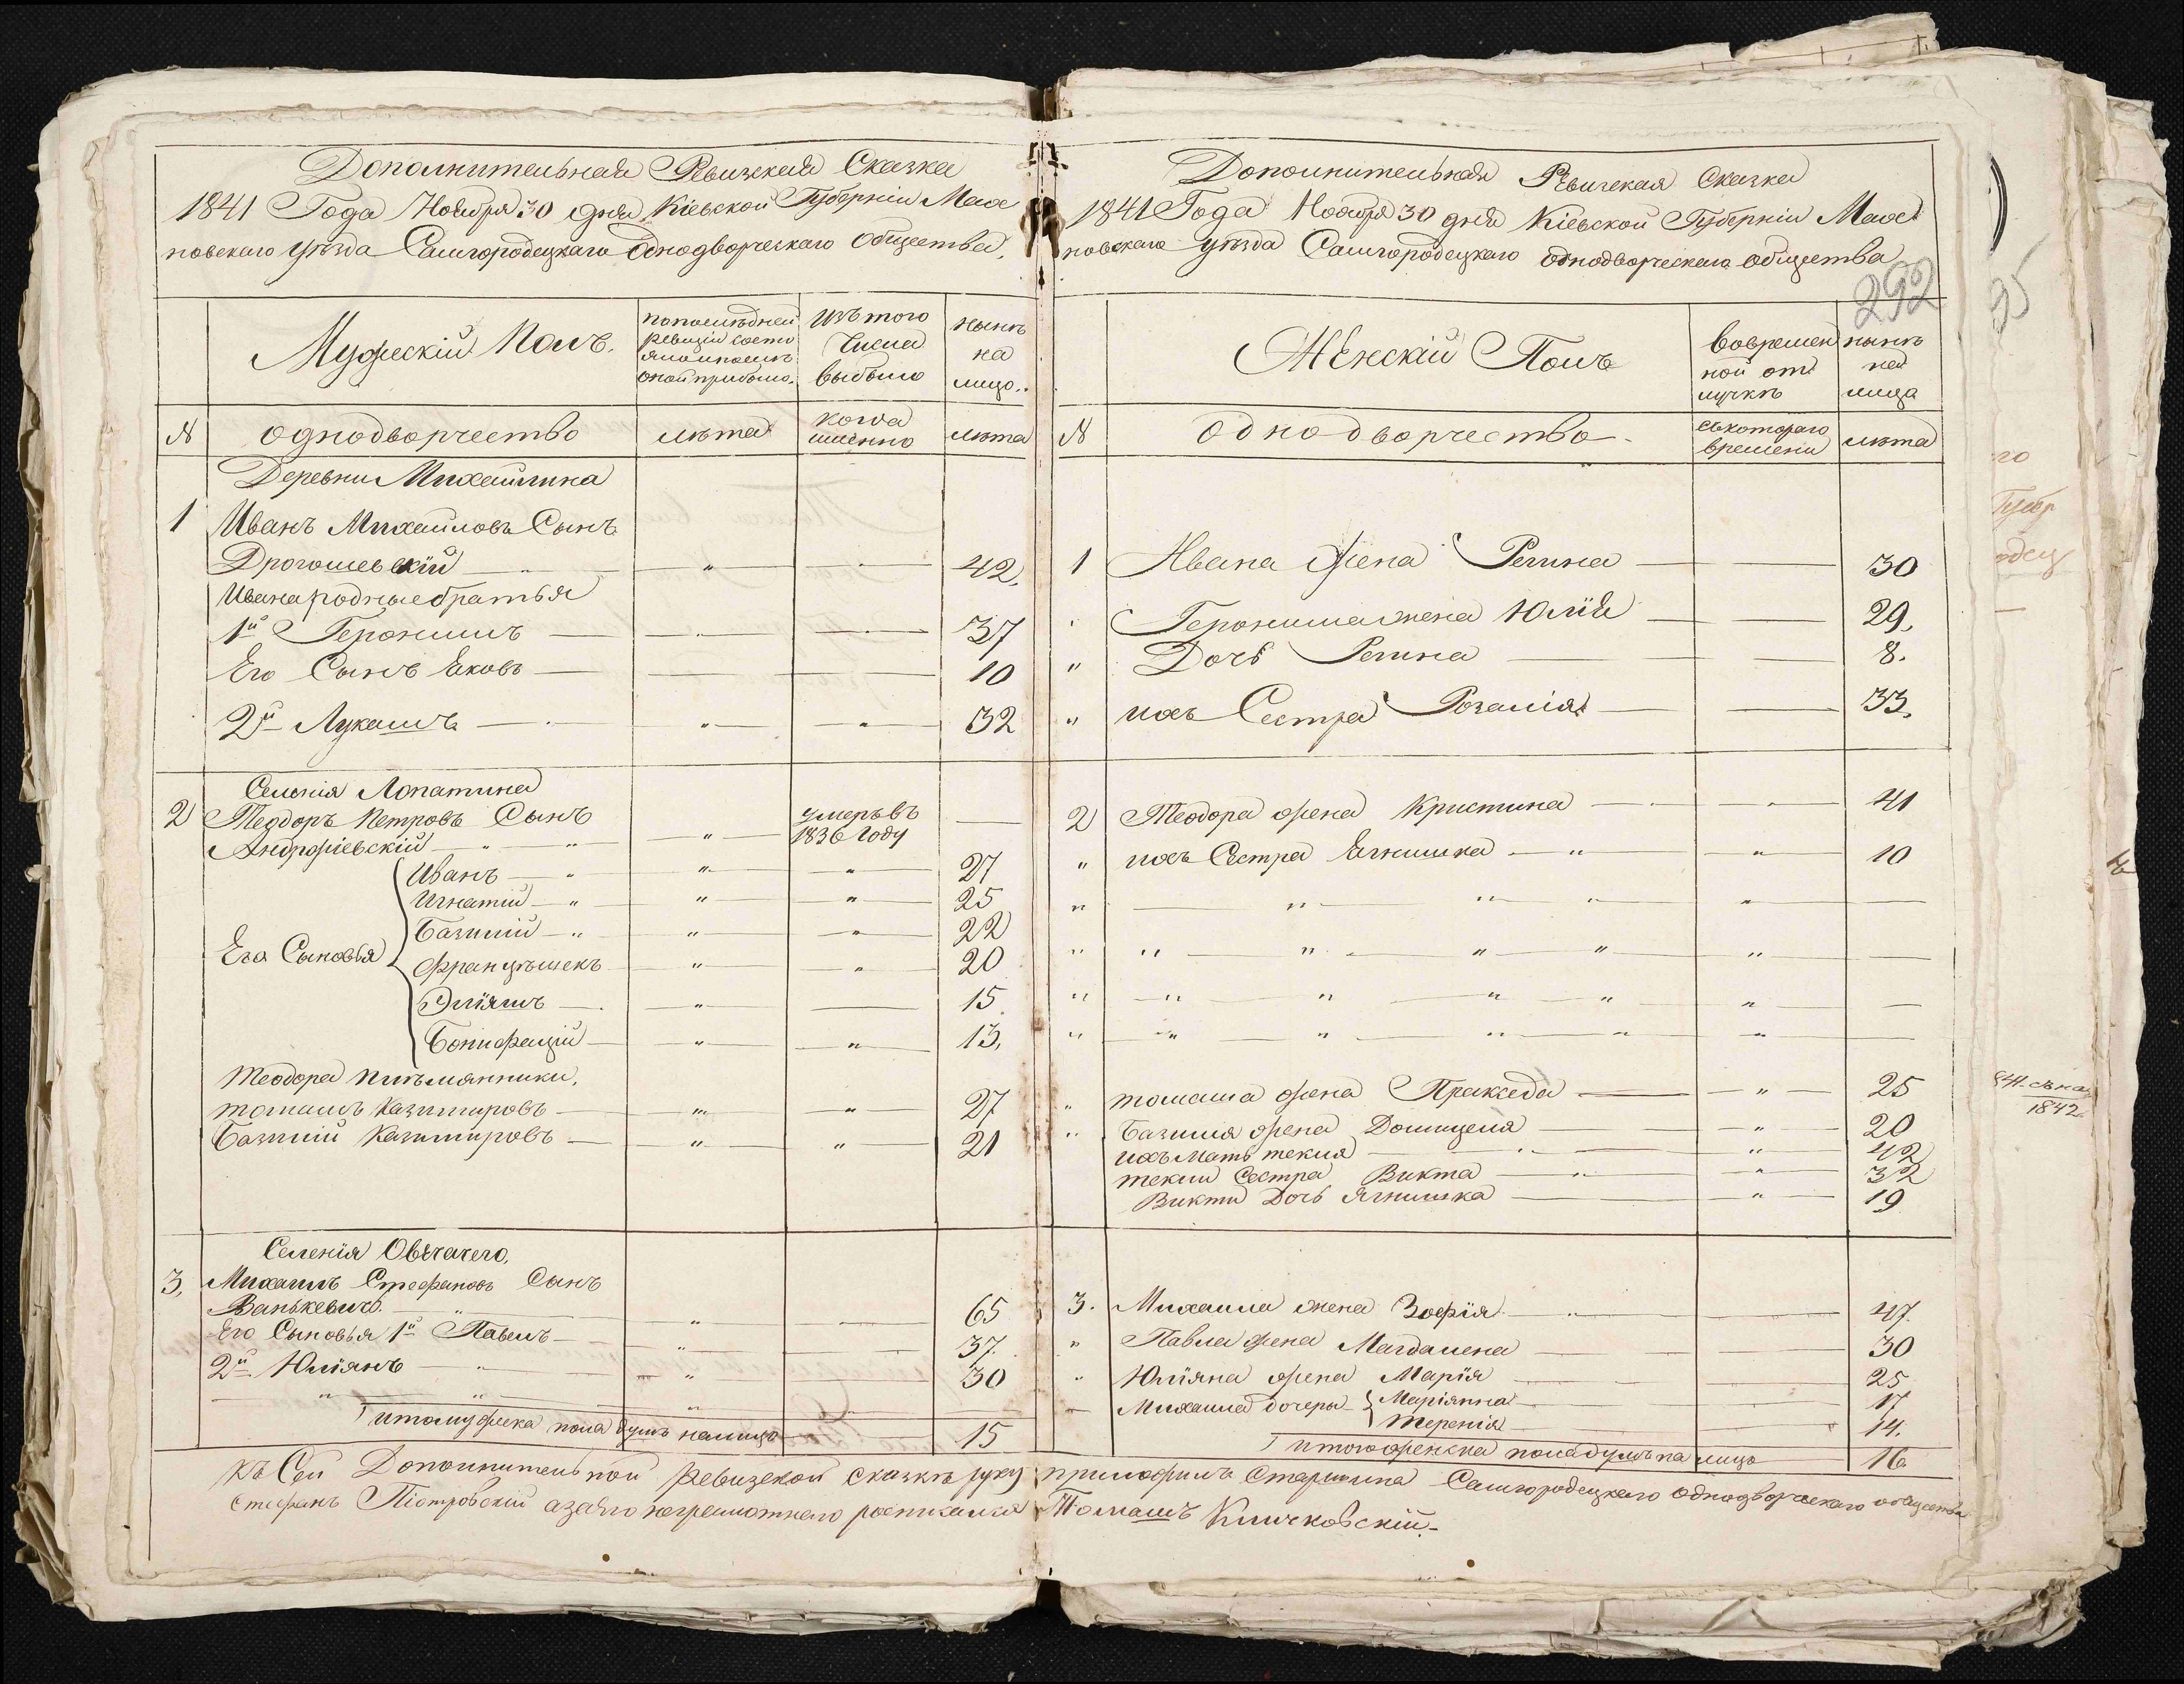 Дополнительная Ревизская Сказка
1841 Года Ноября 30 дня Кіевской Губерніи Мах
новскаго уѣзда Самгородецкаго однодворческаго общества,
Мужескій Полъ.
попослѣдней ревизіи состо яло и послѣ оной прибыло.
изъ того числа выбыло
нынѣ на лицо.
№ однодворчество
лѣта
когда именно
лѣта
Деревни Михайлина
1 Иванъ Михайловъ Сынъ
Дрогошевскій " " 42.
Ивана родные братья
1й Геронимъ 37
Его Сынъ Яковъ 10
2й Лукашъ " " 32
Селенія Лопатина
2 Теодоръ Петровъ Сынъ умеръ въ
Андржіевскій " " " 1836 году
Его Сыновья
Иванъ " " " 27
Игнатій " " " 25
Базилій " " " 22
Францѣшекъ " " 20
Эліяшъ " 15.
Бонифацій " " 13.
Теодора племянники,
томашъ Казимировъ " " 27
Базилій Казимировъ " " 21
Селенія Овечачего,
3, Михаилъ Стефановъ Сынъ
Ванькевичъ. " " 65
Его Сыновья 1й Павелъ " 37.
2й Юліянъ " " 30
" " " "
итого мужеска пола душъ налицо 15
Дополнительная Ревизская Сказка
1841 Года Ноября 30 дня Кіевской Губерніи Мах
новскаго уѣзда Самгородецкаго однодворческаго общества
292
Женскій Полъ
вовремен ной от лучкѣ
нынѣ на лица
№ Однодворчество
съкотораго времени
лѣта
1 Ивана жена Регина 30
Геронима жена Юлія 29.
" Дочь Регина 8.
" ихъ Сестра Розалія 33.
2 Теодора жена Кристина " 41
" ихъ Сестра Ягнишка " " 10
" " " " "
" " " " " "
" " " " " "
" " " " " "
" томаша жена Пракседа " 25
" Базилія жена Домицеля " 20
ихъ мать текля " " 42
текли Сестра Викта " " 32
Викти Дочь Ягнишка " 19
3. Михаила жена Зофія " 47.
" Павла жена Магдалена 30
" Юліяна жена Марія 25
Михаила дочеры Маріянна 17
Теренія 14.
итого женска пола душъ на лицо 16
Къ Сей Дополнительной ревизской сказкѣ руку приложилъ Старшина Самгородецкаго однодворческаго общества
Стефанъ Піотровскій а за его неграмотнаго росписался Томашъ Кличковскій.
95
го
Губер
одец
1842